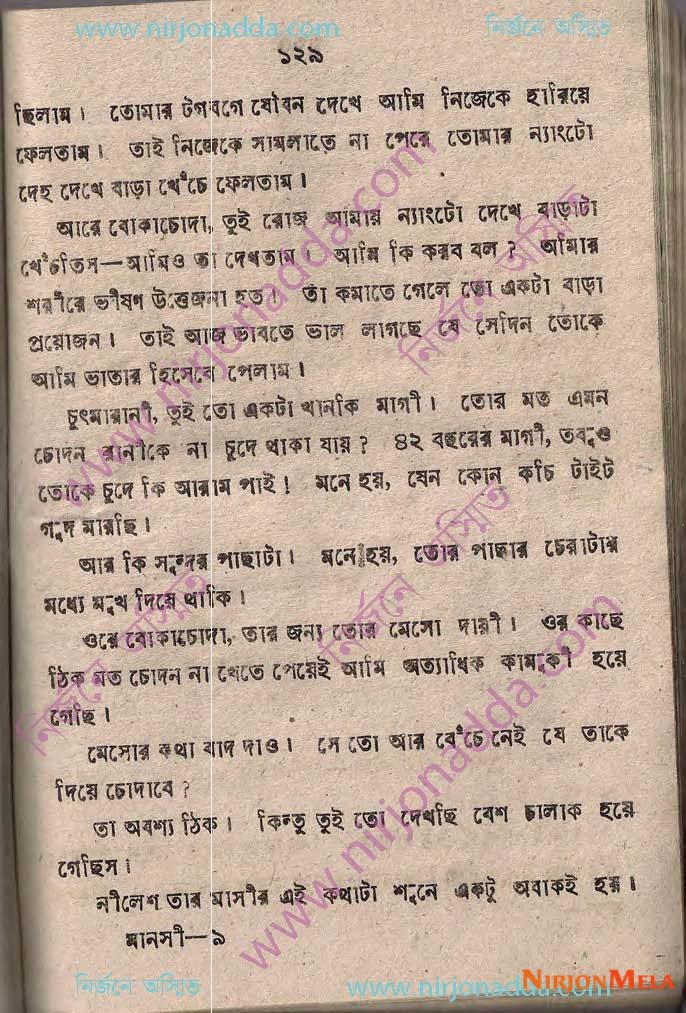 www.nirjonadda.com নির্জনে অস্মিত
১২৯
ছিলাম। তোমার টগবগে যৌবন দেখে আমি নিজেকে হারিয়ে
ফেলতাম। তাই নিজেকে সামলাতে না পেরে তোমার ন্যাংটো
দেহ দেখে বাড়া খেঁচে ফেলতাম।
আরে বোকাচোদা, তুই রোজ আমায় ন্যাংটো দেখে বাড়াটা
খেঁচতিস—আমিও তা দেখতাম। আমি কি করব বল? আমার
শরীরে ভীষণ উত্তেজনা হত। তা কমাতে গেলে তো একটা বাড়া
প্রয়োজন। তাই আজ ভাবতে ভাল লাগছে যে সেদিন তোকে
আমি ভাতার হিসেবে পেলাম।
চুৎমারানী, তুই তো একটা খানকি মাগী। তোর মত এমন
চোদন রানীকে না চুদে থাকা যায়? ৪২ বছরের মাগী, তবুও
তোকে চুদে কি আরাম পাই! মনে হয়, যেন কোন কচি টাইট
গুদ মারছি।
আর কি সুন্দর পাছাটা। মনে হয়, তোর পাছার চেরাটার
মধ্যে মুখ দিয়ে থাকি।
ওরে বোকাচোদা, তার জন্য তোর মেসো দায়ী। ওর কাছে
ঠিক মত চোদন না খেতে পেয়েই আমি অত্যাধিক কামুকী হয়ে
গেছি।
মেসোর কথা বাদ দাও। সে তো আর বেঁচে নেই যে তাকে
দিয়ে চোদাবে?
তা অবশ্য ঠিক। কিন্তু তুই তো দেখছি বেশ চালাক হয়ে
গেছিস।
নীলেশ তার মাসীর এই কথাটা শুনে একটু অবাকই হয়।
মানসী—৯
নির্জনে অস্মিত www.nirjonadda.com
NIRJONMELA
www.nirjonadda.com
নির্জনে অস্মিত
নির্জনে অস্মিত
নির্জনে অস্মিত
www.nirjonadda.com